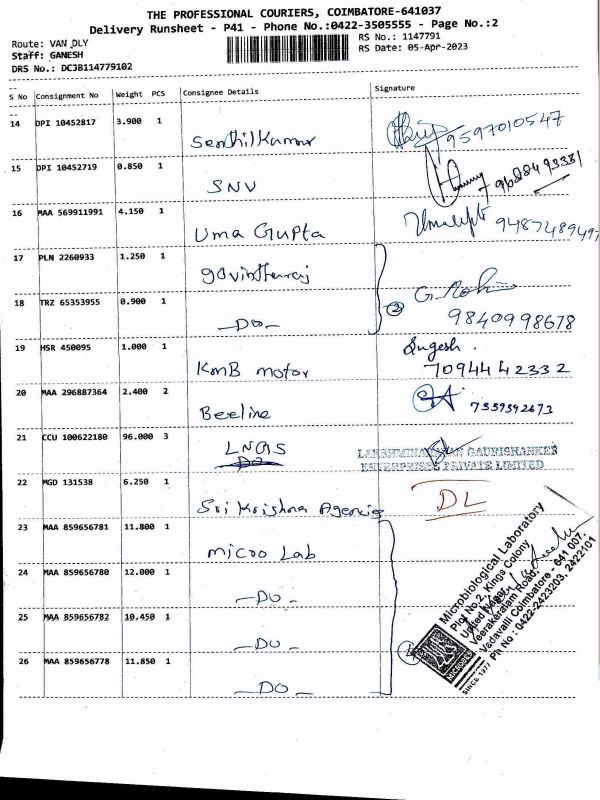 THE PROFESSIONAL COURIERS, COIMBATORE-641037
Delivery Runsheet - P41 - Phone No.:0422-3505555 - Page No.:2
Route: VAN DLY
RS No.: 1147791
Staff: GANESH
RS Date: 05-Apr-2023
DRS No.: DCJB114779102
S No Consignment No Weight PCS Consignee Details Signature
14 DPI 10452817 3.900 1 Senthilkumar 9597010547
15 DPI 10452719 0.850 1 SNV
16 MAA 569911991 4.150 1 Uma Gupta Umagupta 9487489497
17 PLN 2260933 1.250 1
18 TRZ 65353955 0.900 1 -DO- 2 9840998678
19 HSR 450095 1.000 1 KMB motor Sugesh. 7094442332
20 MAA 296887364 2.400 2 Beeline 7339392673
21 CCU 100622180 96.000 3 LNGS
LAKSHMINARAYAN GAURISHANKER
ENTERPRISES PRIVATE LIMITED
22 MGD 131538 6.250 1 Sri Krishna Agencies DL
23 MAA 859656781 11.800 1 micro Lab
24 MAA 859656780 12.000 1 -DO-
25 MAA 859656782 10.450 1 -DO-
26 MAA 859656778 11.850 1 -DO- 4
Microbiological Laboratory
Plot No.2, Kings Colony
United Nagar
Veerakeralam Road,
Vadavalli Coimbatore - 641 007.
Ph No : 0422-2423203, 2422101
SINCE 1977